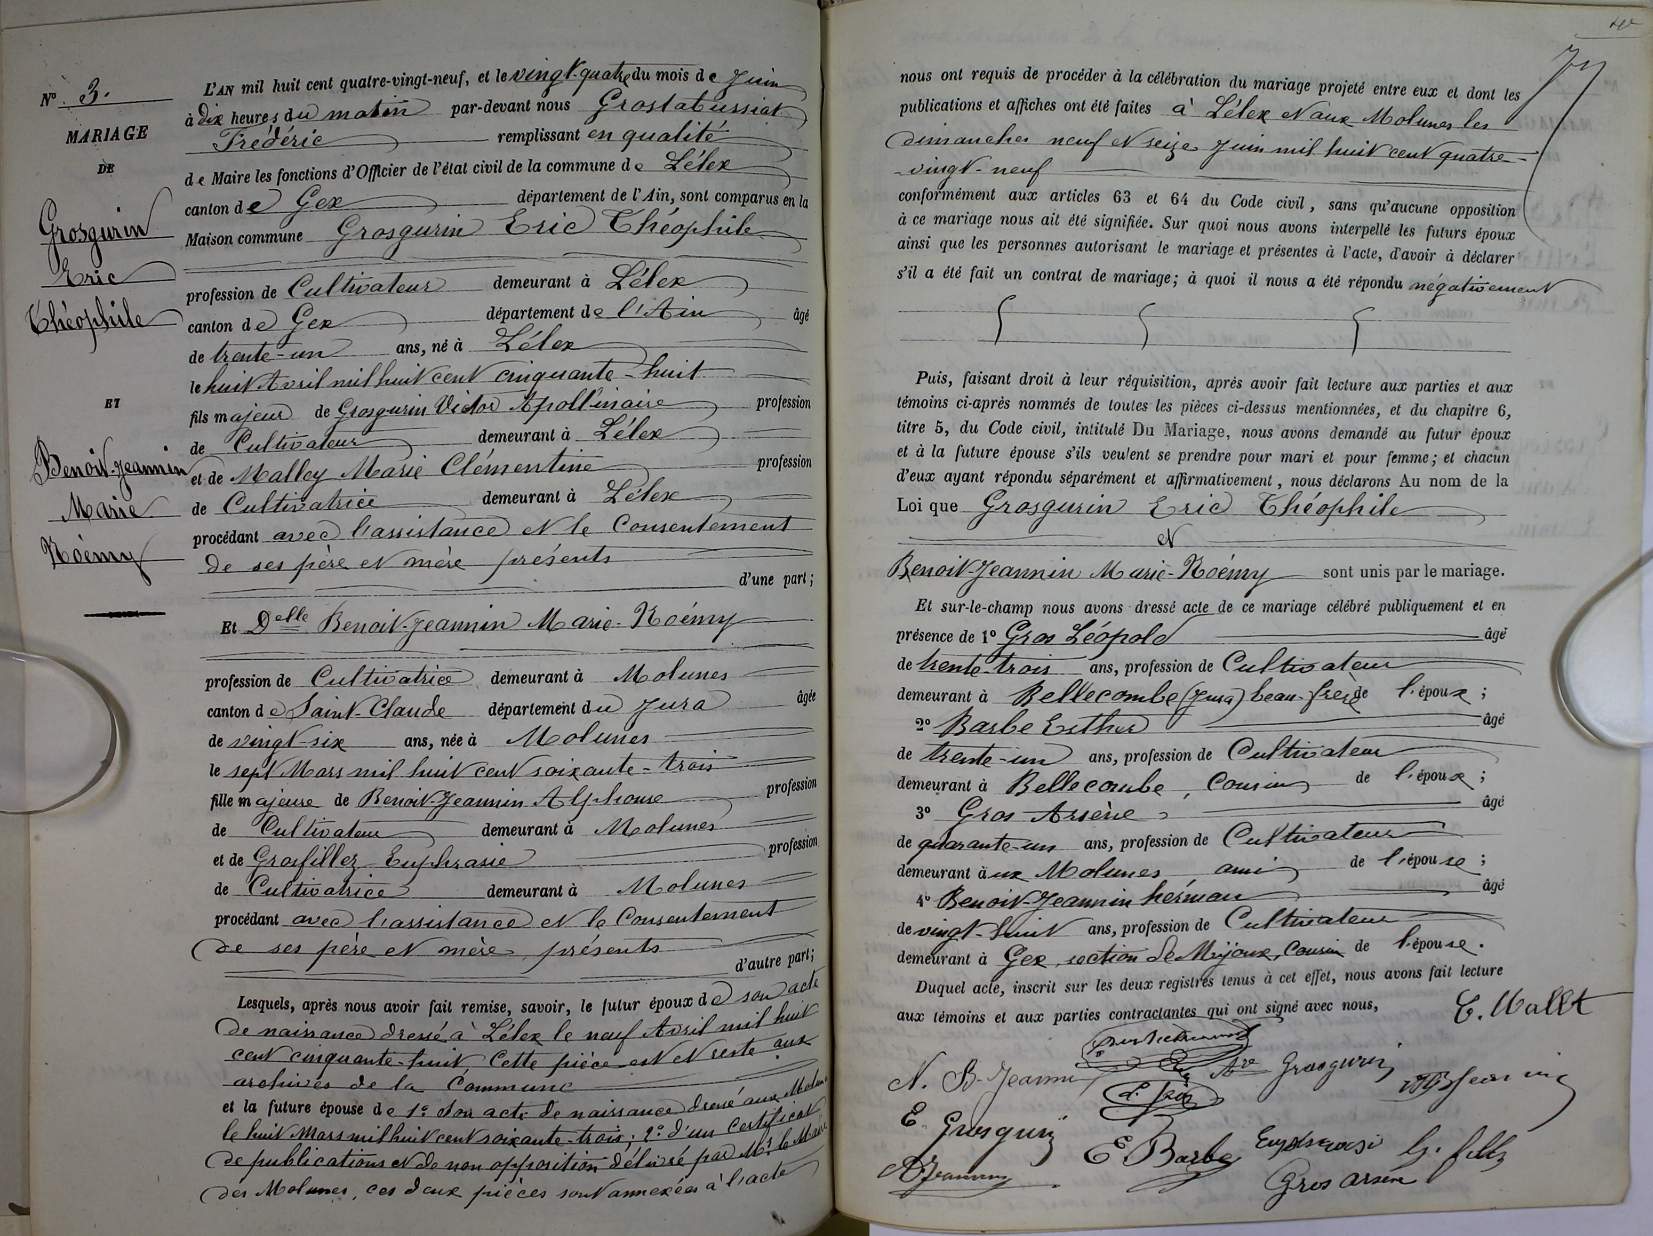 N° 3.
MARIAGE
DE
Grosgurin
Eric
Théophile
ET
Benoit-Jeannin
Marie
Noémy
L'AN mil huit cent quatre-vingt-neuf, et le vingt-quatre du mois de Juin
à dix heures du matin par-devant nous Grostabussiat
Frédéric remplissant en qualité
de Maire les fonctions d'Officier de l'état civil de la commune de Lélex
canton de Gex département de l'Ain, sont comparus en la
Maison commune Grosgurin Eric Théophile
profession de Cultivateur demeurant à Lélex
canton de Gex département de l'Ain âgé
de trente-un ans, né à Lélex
le huit Avril mil huit cent cinquante-huit
fils majeur de Grosgurin Victor Apollinaire profession
de Cultivateur demeurant à Lélex
et de Malley Marie Clémentine profession
de Cultivatrice demeurant à Lélex
procédant avec l'assistance et le Consentement
de ses père et mère présents
d'une part;
Et Delle Benoit-Jeannin Marie-Noémy
profession de Cultivatrice demeurant à Molunes
canton de Saint-Claude département du Jura âgée
de vingt-six ans, née à Molunes
le sept Mars mil huit cent soixante-trois
fille majeure de Benoit-Jeannin Alphonse profession
de Cultivateur demeurant à Molunes
et de Grosfillez Euphrasie profession
de Cultivatrice demeurant à Molunes
procédant avec l'assistance et le Consentement
de ses père et mère présents
d'autre part;
Lesquels, après nous avoir fait remise, savoir, le futur époux de son acte
de naissance dressé à Lélex le neuf Avril mil huit
cent cinquante-huit Cette pièce est et reste aux
archives de la Commune
et la future épouse de 1° Son acte de naissance dressé aux Molunes
le huit Mars mil huit cent soixante-trois; 2° d'un certificat
de publications et de non opposition délivré par Mr le Maire
des Molunes, ces deux pièces sont annexées à l'acte
nous ont requis de procéder à la célébration du mariage projeté entre eux et dont les
publications et affiches ont été faites à Lélex et aux Molunes les
dimanches neuf et seize Juin mil huit cent quatre-
-vingt-neuf
conformément aux articles 63 et 64 du Code civil, sans qu'aucune opposition
à ce mariage nous ait été signifiée. Sur quoi nous avons interpellé les futurs époux
ainsi que les personnes autorisant le mariage et présentes à l'acte, d'avoir à déclarer
s'il a été fait un contrat de mariage; à quoi il nous a été répondu négativement
Puis, faisant droit à leur réquisition, après avoir fait lecture aux parties et aux
témoins ci-après nommés de toutes les pièces ci-dessus mentionnées, et du chapitre 6,
titre 5, du Code civil, intitulé Du Mariage, nous avons demandé au futur époux
et à la future épouse s'ils veulent se prendre pour mari et pour femme; et chacun
d'eux ayant répondu séparément et affirmativement, nous déclarons Au nom de la
Loi que Grosgurin Eric Théophile
et
Benoit-Jeannin Marie-Noémy sont unis par le mariage.
Et sur-le-champ nous avons dressé acte de ce mariage célébré publiquement et en
présence de 1° Gros Léopold âgé
de trente-trois ans, profession de Cultivateur
demeurant à Bellecombe (Jura) beau-frère de l'époux;
2° Barbe Esther âgé
de trente-un ans, profession de Cultivateur
demeurant à Bellecombe, Cousin de l'époux;
3° Gros Arsène âgé
de quarante-un ans, profession de Cultivateur
demeurant aux Molunes ami de l'épouse;
4° Benoit-Jeannin herman âgé
de vingt-huit ans, profession de Cultivateur
demeurant à Gex, section de Mijoux, Cousin de l'épouse.
Duquel acte, inscrit sur les deux registres tenus à cet effet, nous avons fait lecture
aux témoins et aux parties contractantes qui ont signé avec nous,
C. Mallet
N. B-Jeannin
Ave Grosgurin
E. Grosgurin
L. Gros
E. Barbe
Gros arsène
AJeannin